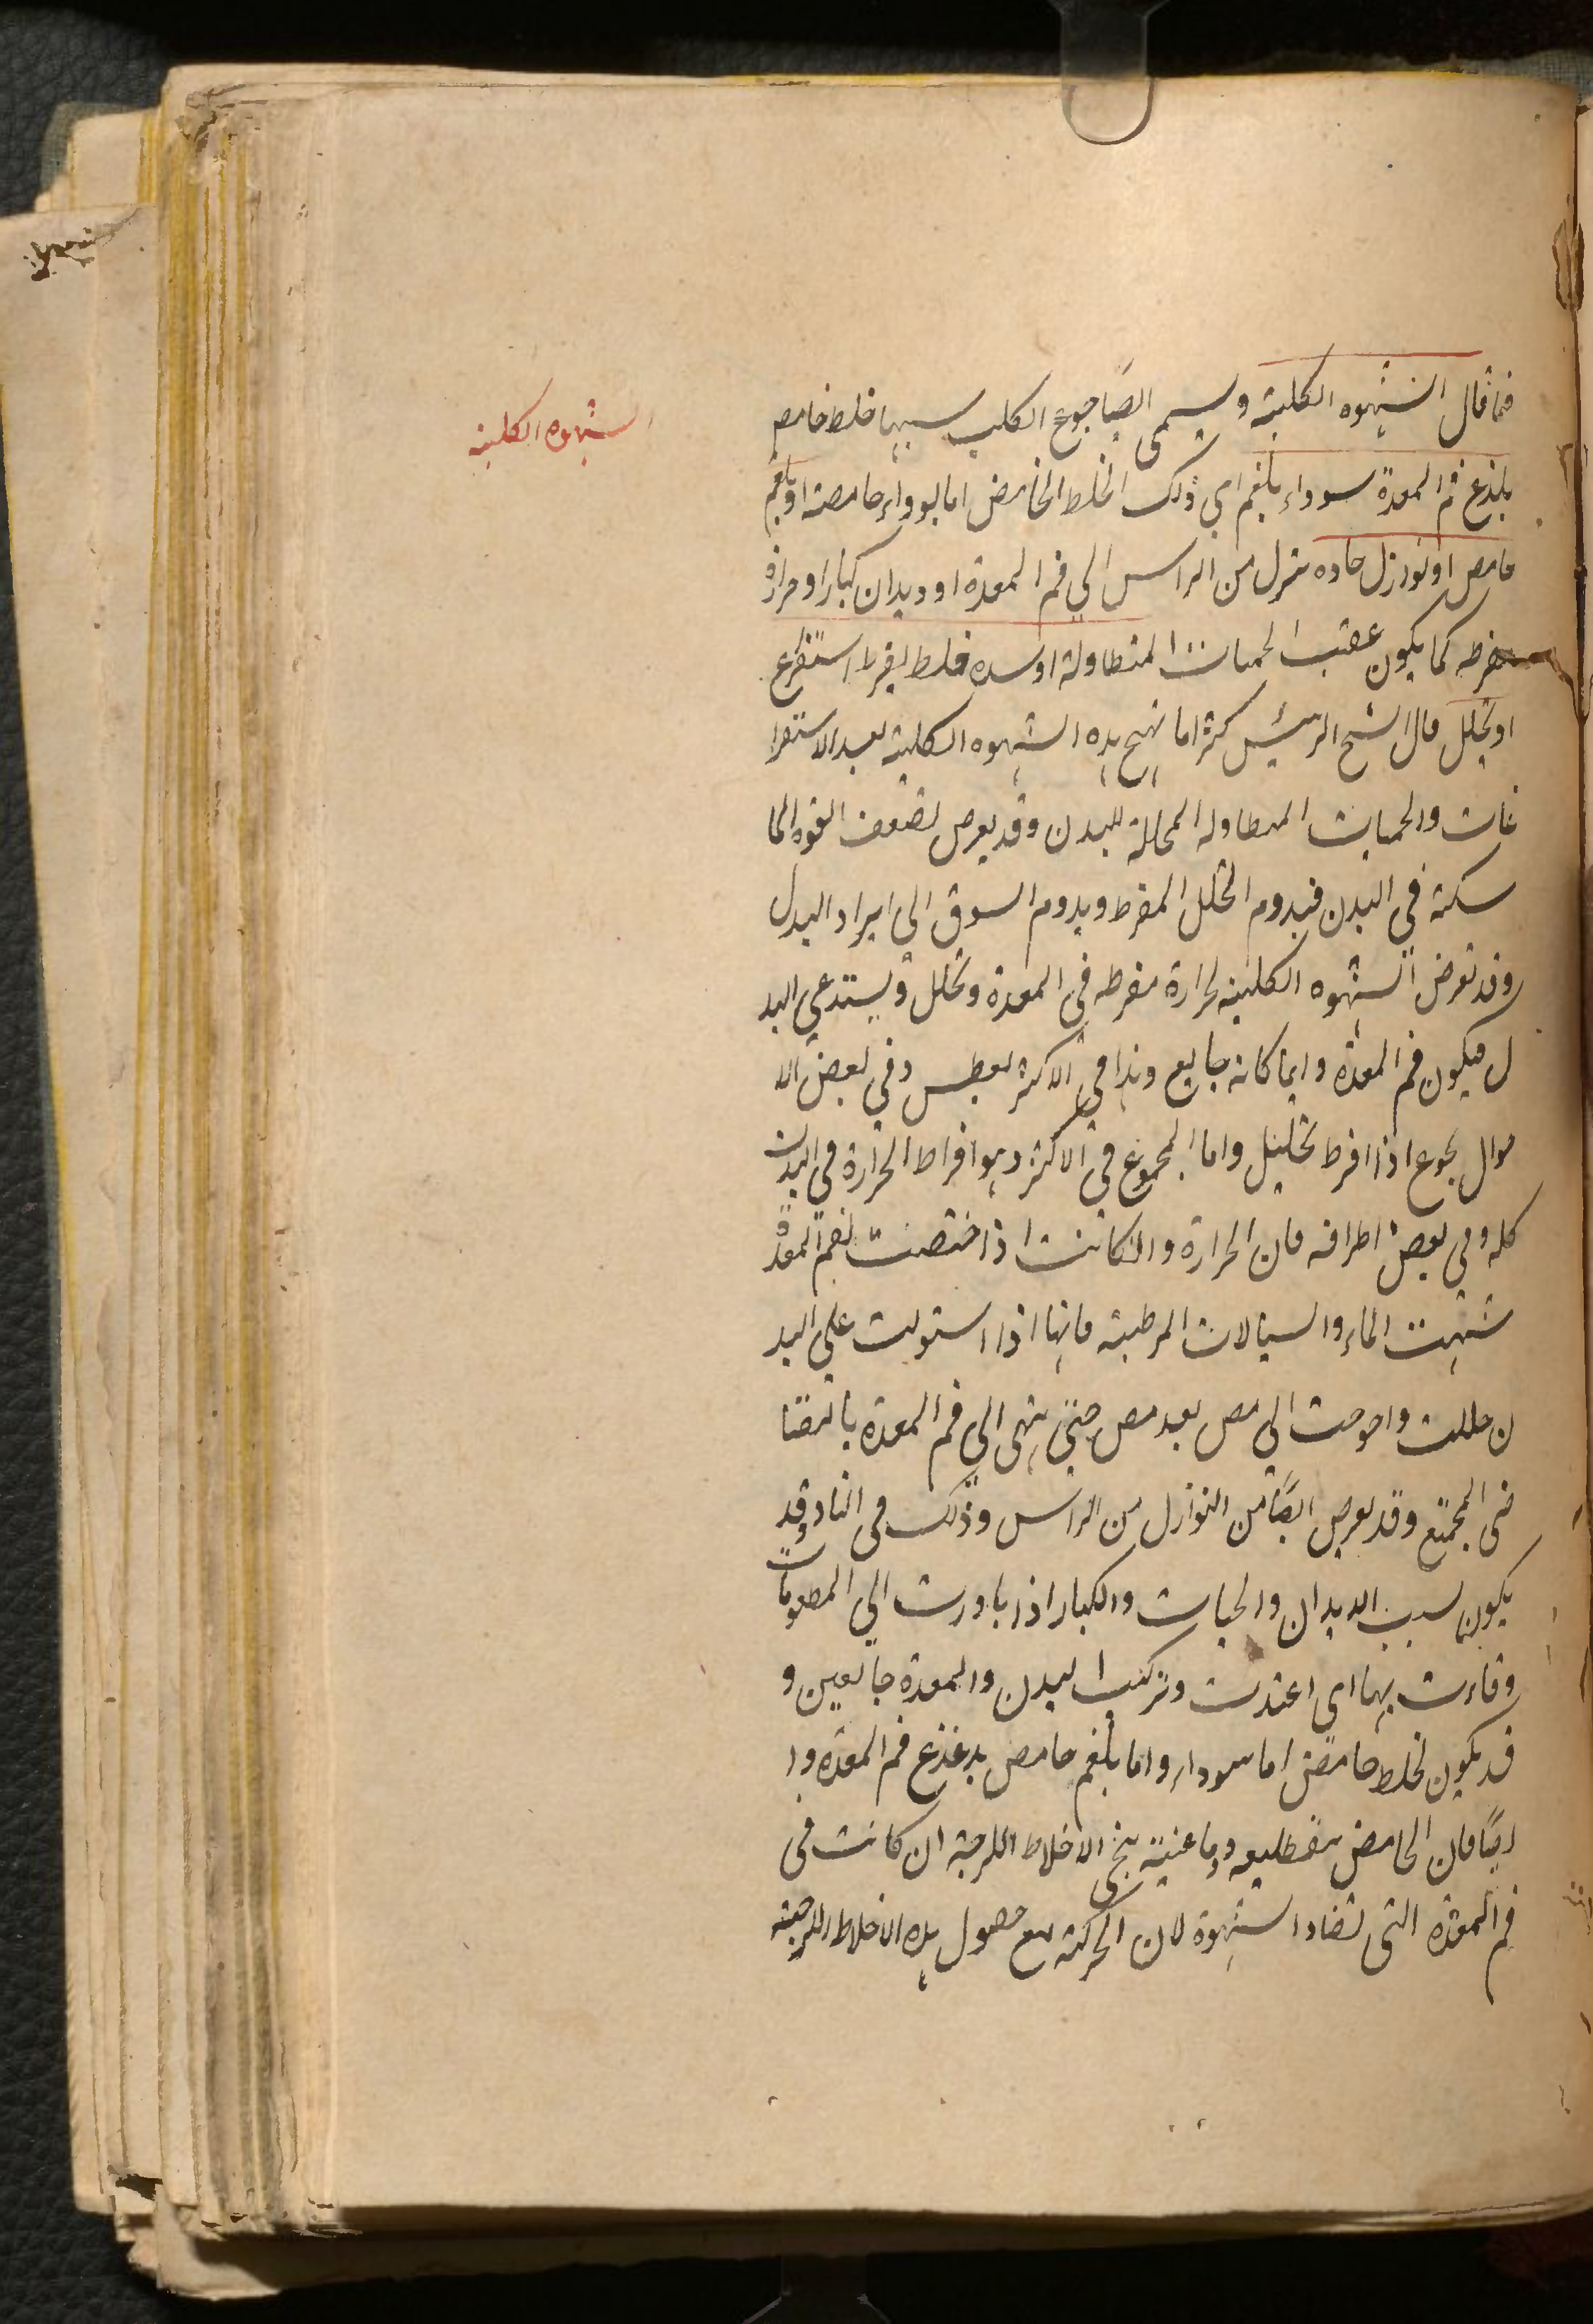 الشهوه الكلبية
فما قال الشهوه الكلبية ويسمى ايضًا جوع الكلب سببها خلط حامض
يلذغ فم المعدة سوداء بلغم اى ذلك الخلط الحامض اما سوداء حامضة او بلغم
حامض او نوازل حاده تنزل من الراس الى فم المعدة او ديدان كبار او حرارة
مفرطه كما يكون عقيب الحميات المتطاولة او شده خلط لفرط استفرغ
او تحلل قال الشيخ الرئيس كثيرا ما تهيج هذه الشهوه الكلبية بعد الاستفرا
غات والحميات المتطاوله المحللة للبدن وقد يعرض لضعف القوه الما
سكة في البدن فيدوم التحلل المفرط ويدوم السوق الى ايراد البدل
وقد تعرض الشهوه الكلبيه لحرارة مفرطه فى المعدة وتحلل ويستدعى البد
ل فيكون فم المعدة دايما كانه جايع وهذا فى الاكثر يعطس وفى بعض الا
حوال يجوع اذا افرط تحليل واما المجموع فى الاكثر وهو افراط الحرارة فى البدن
كله وفى بعض اطرافه فان الحرارة وان كانت اذا اختصت بفم المعدة
شهت الماء والسيالات المرطبة فانها اذا استولت على البد
ن حللت واحوجت الى مص بعد مص حتى ينتهى الى فم المعدة بالتقا
ضى المجمع وقد يعرض ايضًا من النوازل من الراس وذلك فى النادر وقد
يكون لسبب الديدان والحيات والكبار اذا بادرت الى المطعومات
وفازت بها اى اغتذت وتركت البدن والمعدة جايعين و
قد يكون لخلط حامض اما سوداء واما بلغم حامض يدغذغ فم المعده وا
ايضًا فان الحامض بتقطيعه ودباغيته ينحى الاخلاط اللزجة ان كانت فى
فم المعدة التى تضاد الشهوة لان الحركة مع حصول هذه الاخلاط اللزجة